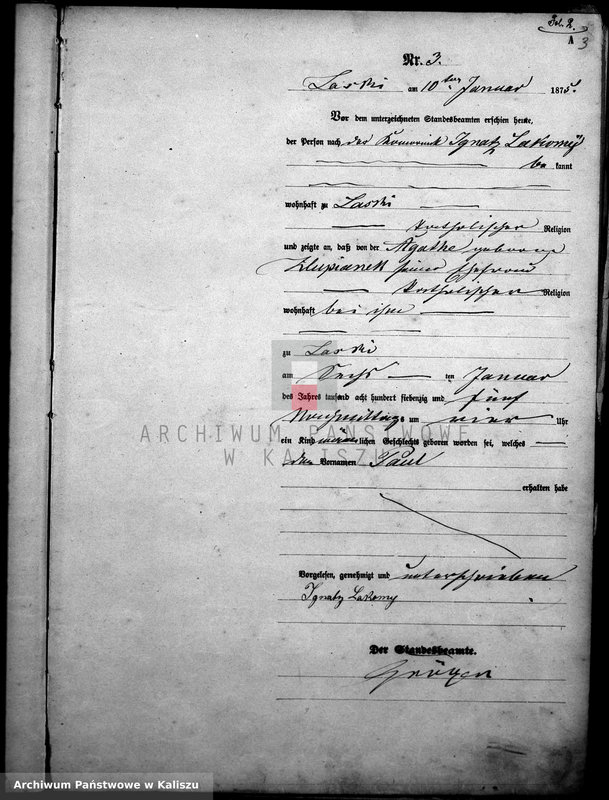 A 3
Nr. 3.
Laski am 10ten Januar 1875.
Vor dem unterzeichneten Standesbeamten erschien heute,
der Person nach der Komornik Ignatz Lakomy
be kannt
wohnhaft zu Laski
katholischer Religion
und zeigte an, daß von der Agathe geborene
seiner Ehefrau
katholischer Religion
wohnhaft bei ihm
zu Laski
am Sechs ten Januar
des Jahres tausend acht hundert siebenzig und fünf
Nachmittags um vier Uhr
ein Kind männlichen Geschlechts geboren worden sei, welches
den Vornamen Paul
erhalten habe
Vorgelesen, genehmigt und unterschrieben
Ignatz Lakomy
Der Standesbeamte.
ARCHIWUM PAŃSTWOWE
W KALISZU
Archiwum Państwowe w Kaliszu